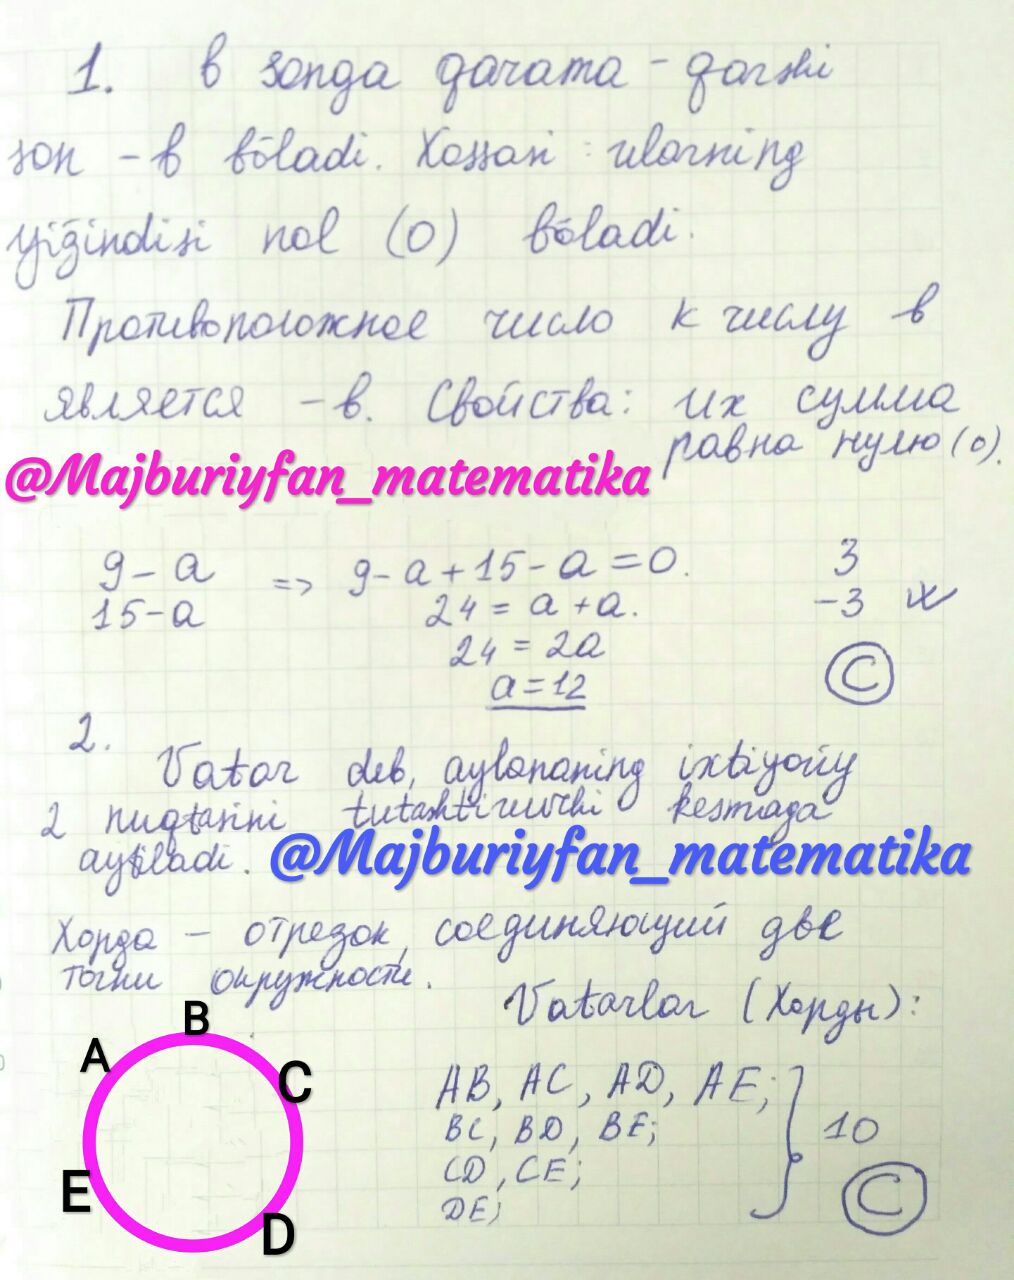 1. b songa qarama-qarshi
son -b bo̅ladi. Xossasi: ularning
yig̅indisi nol (0) bo̅ladi.
Противоположное число к числу в
является -в. Свойства: их сумма
равна нулю (0).
@Majburiyfan_matematika
9-a => 9-a+15-a=0. 3
15-a 24=a+a. -3
24=2a
a=12 C
2.
Vatar deb, aylananing ixtiyoriy
2 nuqtasini tutashtiruvchi kesmaga
aytiladi. @Majburiyfan_matematika
Хорда - отрезок, соединяющий две
точки окружности.
Vatarlar (Хорды):
B
A
C
E
D
AB, AC, AD, AE;
BC, BD, BE;
CD, CE;
DE;
10
C